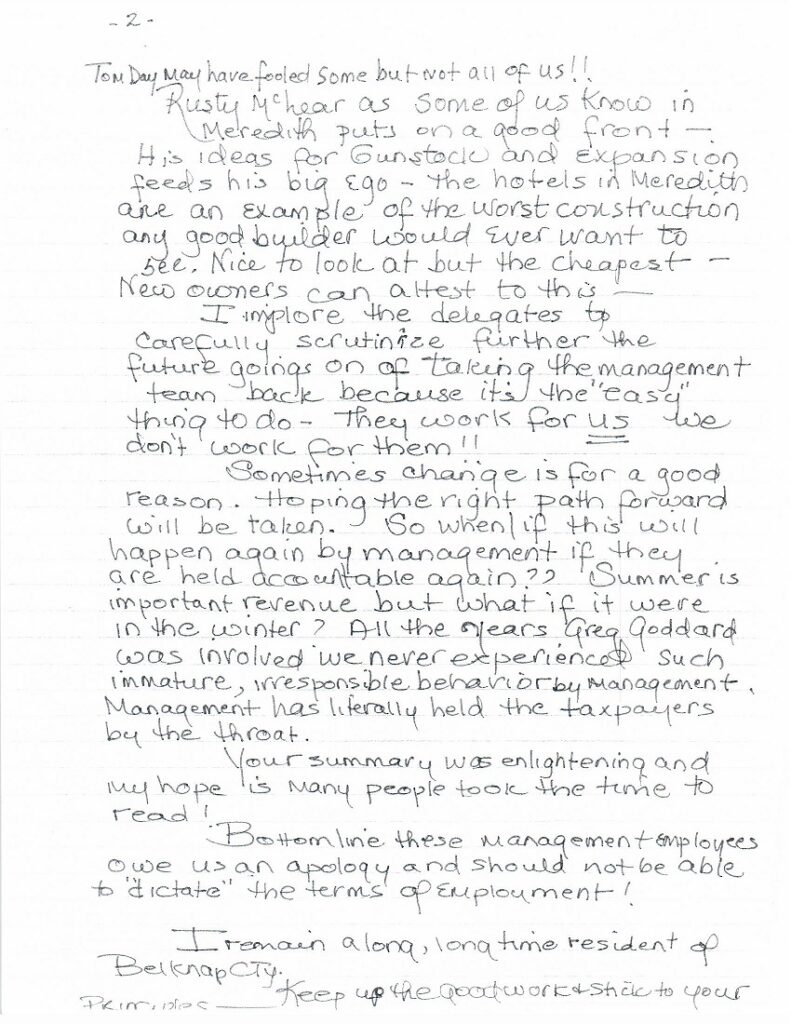 - 2 -
Tom Day May have fooled some but not all of us!!
Rusty McLear as some of us know in
Meredith puts on a good front —
His ideas for Gunstock and expansion
feeds his big Ego - the hotels in Meredith
are an example of the worst construction
any good builder would ever want to
see. Nice to look at but the cheapest -
New owners can attest to this —
I implore the delegates to
carefully scrutinize further the
future goings on of taking the management
team back because it's the "easy"
thing to do - They work for us we
don't work for them!!
Sometimes change is for a good
reason. Hoping the right path forward
will be taken. So when/if this will
happen again by management if they
are held accountable again?? Summer is
important revenue but what if it were
in the winter? All the years Greg Goddard
was involved we never experienced such
immature, irresponsible behavior by Management.
Management has literally held the taxpayers
by the throat.
Your summary was enlightening and
my hope is many people took the time to
read!
Bottom line these management employees
owe us an apology and should not be able
to "dictate" the terms of Employment!
I remain a long, long time resident of
Belknap CTy.
Keep up the good work & stick to your
Principles —